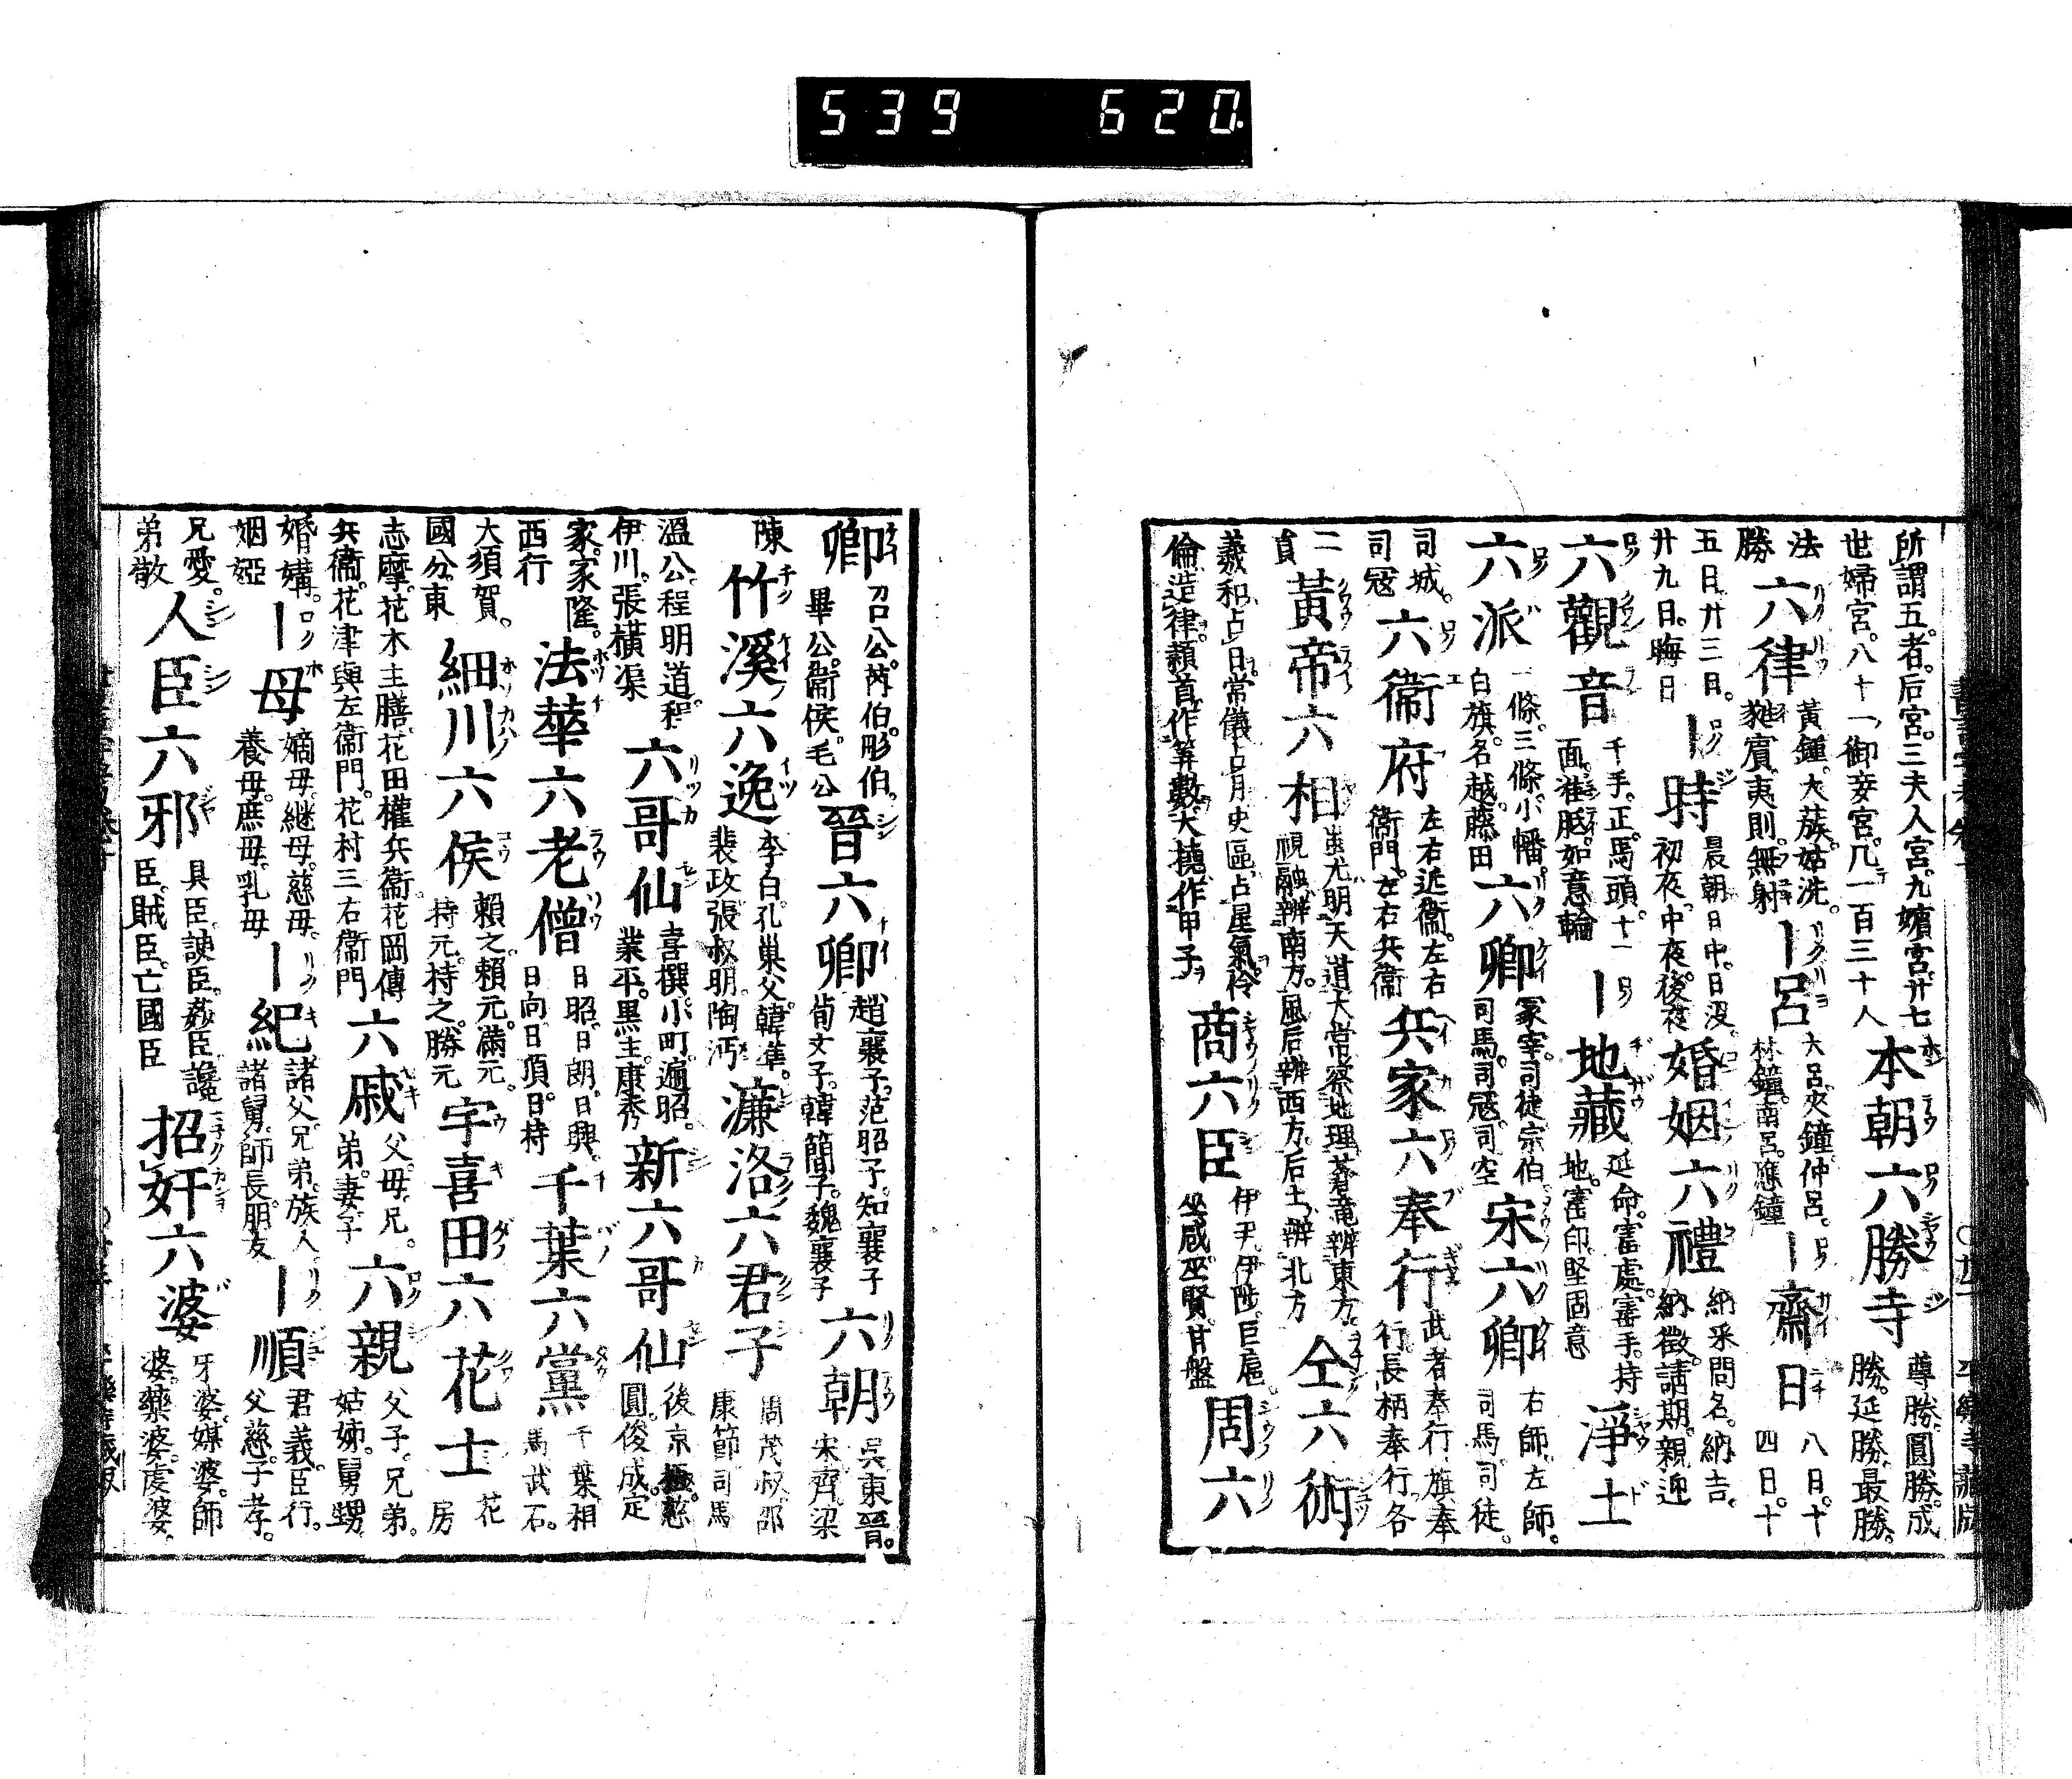 539 620
所謂五者。后宮。三夫人宮。九嬪宮。廿七
世婦宮。八十一御妾宮。凡一百三十人
本朝六勝寺
尊勝。圓勝。成
勝。延勝。最勝。
法
勝
六律
黃鍾。大蔟。姑洗。
蕤賓。夷則。無射
｜呂
大呂。夾鐘。仲呂。
林鐘。南呂。應鐘
｜齋日
八日。十
四日。十
五日。廿三日。
廿九日。晦日
｜時
晨朝。日中。日没。
初夜。中夜。後夜
婚姻六禮
納采。問名。納吉。
納徵。請期。親迎
六觀音
千手。正。馬頭。十一
面。准胝。如意輪
｜地藏
延命。寳處。寳手。持
地。寳印。堅固意
淨土
六派
一條。三條。小幡。
白旗。名越。藤田
六卿
冢宰。司徒。宗伯。
司馬。司寇。司空
宋六卿
右師。左師。
司馬。司徒。
司城。
司寇
六衞府
左右近衞。左右
衞門。左右兵衞
兵家六奉行
武者奉行。旗奉
行。長柄奉行。各
二
黃帝六相
蚩尤明天道。大常察地理。蒼竜辨東方。
視融辨南方。風后辨西方。后土辨北方
仝六術
羲和占日。常儀占月。史區占星氣。伶
倫造律。隷首作筭數。大撓作甲子
商六臣
伊尹。伊陟。臣扈。
巫咸。巫賢。甘盤
周六
卿
召公。芮伯。彤伯。
畢公。衞侯。毛公
晉六卿
趙襄子。范昭子。知襄子
荀文子。韓簡子。魏襄子
六朝
吳。東晉。
宋。齊。梁
陳
竹溪六逸
李白。孔巢父。韓準。
裴政。張叔明。陶沔
濂洛六君子
周茂叔。邵
康節。司馬
溫公。程明道。程
伊川。張橫渠
六哥仙
喜撰。小町。遍昭。
業平。黑主。康秀
新六哥仙
後京極。慈
圓。俊成。定
家。家隆。
西行
法華六老僧
日昭。日朗。日興。
日向。日頂。日持
千葉六黨
千葉。相
馬。武石。
大須賀。
國分。東
細川六侯
賴之。賴元。滿元。
持元。持之。勝元
宇喜田六花士
花
房
志摩。花木主膳。花田權兵衞。花岡傳
兵衞。花津與左衞門。花村三右衞門
六戚
父。母。兄。
弟。妻。子
六親
父子。兄弟。
姑姊。舅甥
婚媾。
姻婭
｜母
嫡母。継母。慈母。
養母。庶母。乳母
｜紀
諸父。兄弟。族人
諸舅。師長。朋友
｜順
君義。臣行。
父慈。子孝。
兄愛。
弟敬
人臣六邪
具臣。諛臣。姦臣。讒
臣。賊臣。亡國臣
招奸六婆
牙婆。媒婆。師
婆。藥婆。虔婆。